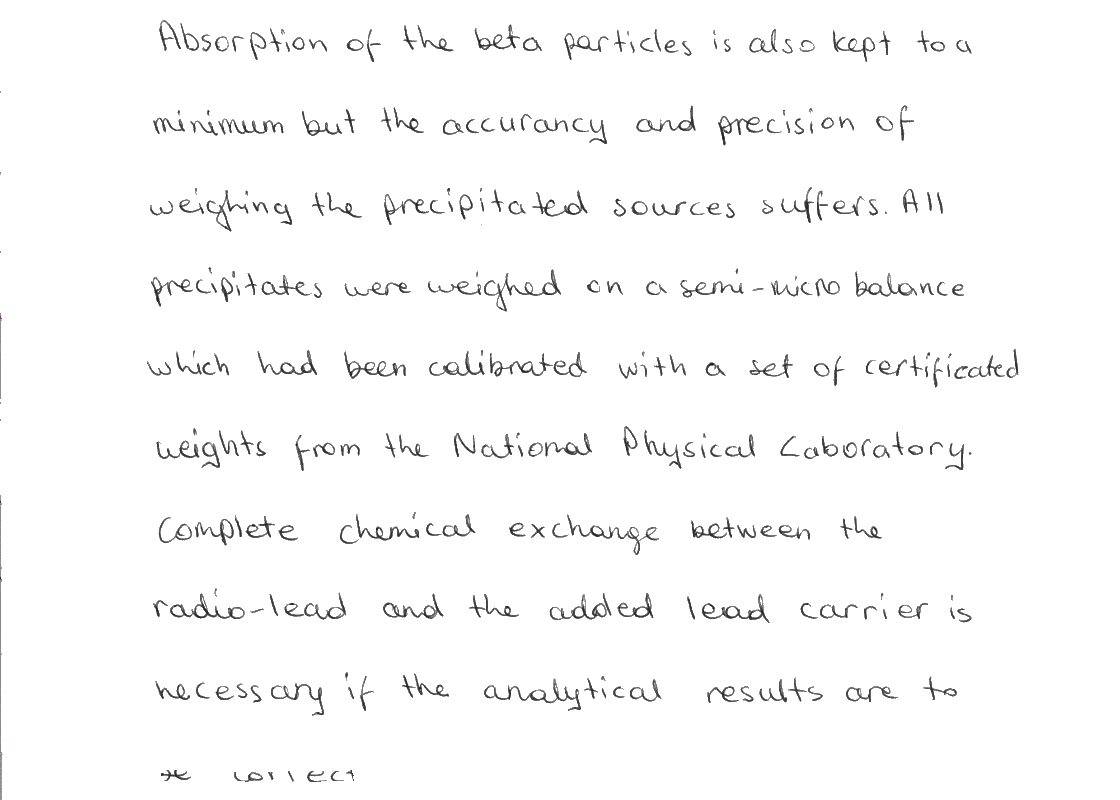 Absorption of the beta particles is also kept to a
minimum but the accurancy and precision of
weighing the precipitated sources suffers. All
precipitates were weighed on a semi-micro balance
which had been calibrated with a set of certificated
weights from the National Physical Laboratory.
Complete chemical exchange between the
radio-lead and the added lead carrier is
necessary if the analytical results are to
correct